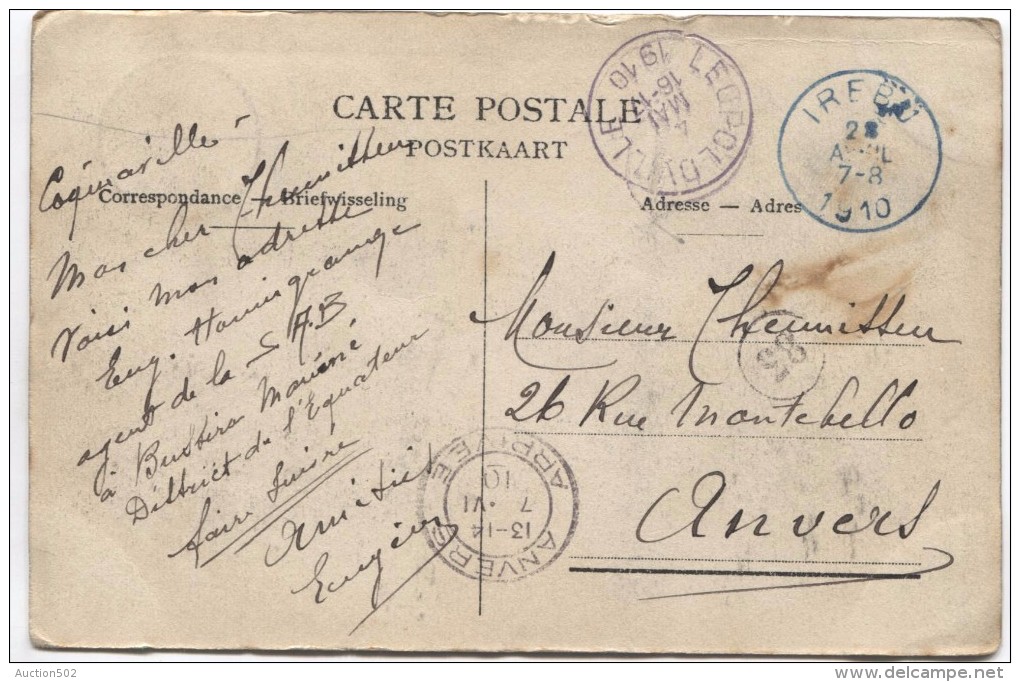 CARTE POSTALE
POSTKAART
Correspondance — Briefwisseling
Adresse — Adres
LEOPOLDVILLE
16-17
4
MAI
1910
IREBU
28
AVRIL
7-8
1910
Coquinville
Mon cher Theunissen
Voici mon adresse
Eug. Hannigrange
agent de la S A.B
à Bussira Manéné
District de l'Equateur
faire suivre
Amitiés
Eugène
Monsieur Theunissen
26 Rue Montebello
Anvers
ANVERS
13-14
7 VI
10
ARRIVEE
Auction502
delcampe.net